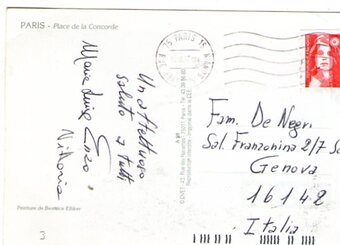 PARIS - Place de la Concorde
75 PARIS 15
Un affettuoso
saluto a tutti
Maria Luisa Enzo
Vittoria
Fam. De Negri
Sal. Franzonina 2/7 S
Genova
16142
Italia
Peinture de Béatrice Ellifen
3